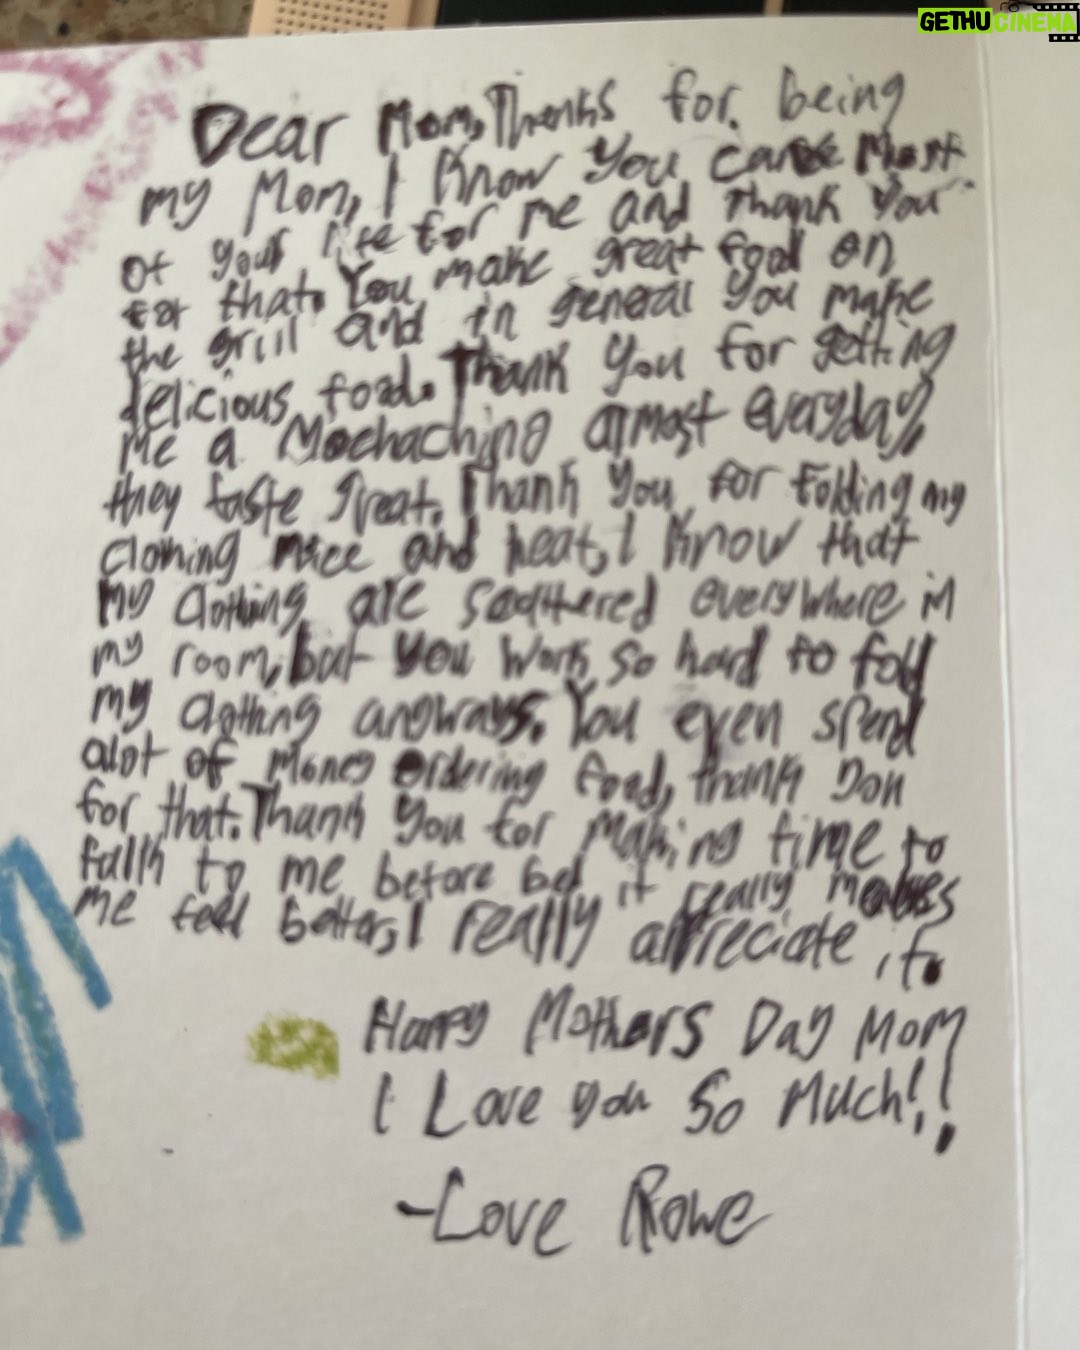 GETHUCINEMA
Dear Mom, Thanks for being
my Mom, I know you care most
of your life for me and thank you
for that. You make great food on
the grill and in general you make
delicious food. Thank you for getting
me a Mochaching almost everyday,
they taste great. Thank you for folding my
clothing nice and neat, I know that
my clothing are scattered everywhere in
my room, but you work so hard to fold
my clothing anyways. You even spend
alot of money ordering food, thank you
for that. Thank you for making time to
talk to me before bed it really makes
me feel better, I really appreciate it.
Happy Mothers Day Mom
I Love you So Much!!
-Love Rowe